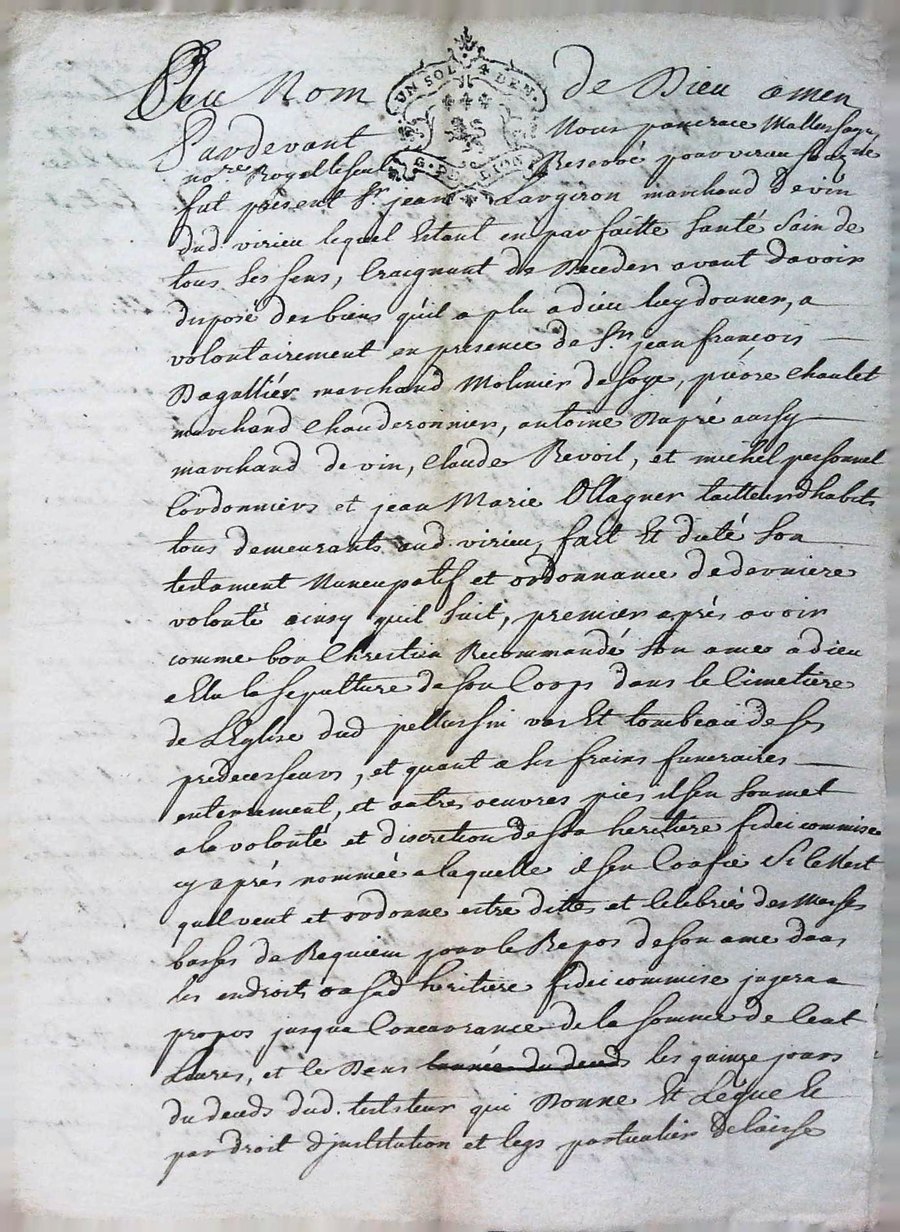 Au Nom de Dieu amen
UN SOL 4 DEN.
G. DE LION
Pardevant Nous pancrace
nore Royal Reservé pour virieu
fut présent Sr. jean Largeron marchand de vin
dud. virieu lequel Estant en parfaitte santé Sain de
tous ses sens, Craignant de Deceder avant davoir
disposé des biens qu'il a plu a dieu luy donner, a
volontairement en presence de Sr. jean françois
Dagallier marchand Molinier de soye, piérre Chaulet
marchand Chauderonnier, antoine Dupré aussy
marchand de vin, Claude Revoil, et michel personnel
Cordonniers et jean Marie Ollagner tailleur dhabits
tous demeurants aud. virieu, fait Et dicté Son
testament Nuncupatif et ordonnance de derniere
volonté ainsy quil Suit, premier aprés avoir
comme bon Chrestien Recommandé Son ame a dieu
a Elu la sepulture de son Corps dans le Cimetiére
de L'Eglise dud pellussin vas Et tombeau de ses
predecesseurs, et quant a ses frairs funeraires
enterrement, et autres oeuvres pies il sen Soumet
a la volonté et discretion de son heritiére fideicommise
cy aprés nommée a laquelle il sen Confie Si le Nest
quil veut et ordonne estre dittes et Celebrés des Messes
basses de Requiem pour le Repos de son ame dans
les endroits ou sad heritiere fideicommise jugera a
propos jusqua Concurrance de la somme de Cent
Livres, et ce Dans lannée du deceds les quinze jours
du deceds dud. testateur qui Donne Et Legue Et
par droit d'institution et legs particulier delaisse